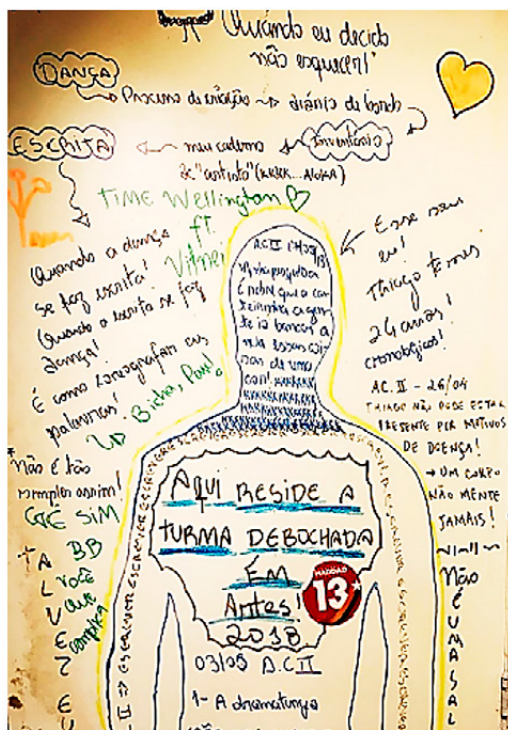 Quando eu decido
não esquecer!
DANÇA
Processo de criação → diário de bordo
ESCRITA
meu caderno
Inventário
de "artista" (KKKK... ALOKA)
TIME Wellington
ft.
Vitnei
Quando a dança
se faz escrita!
Quando a escrita se faz
dança!
É como coreografar as
palavras!
Bicha, Pare!
Não é tão
simples assim!
CÊ SIM
BB
você
que
complica
TALVEZ EU
Esse sou
eu!
Thiago Torres
24 anos!
cronológicos!
AC. II - 26/04
THIAGO NÃO PODE ESTAR
PRESENTE POR MOTIVOS
DE DOENÇA!
→ UM CORPO
NÃO MENTE
JAMAIS!
NÃO
É UMA SAL
A.C II
É nela que a
KKKKKKKK
ESCREVER ESCREVER ESCREVER
AQUI RESIDE A
TURMA DEBOCHADA
EM
Artes!
2018
HADDAD
13
03/05 A.C II
1- A dramaturgia